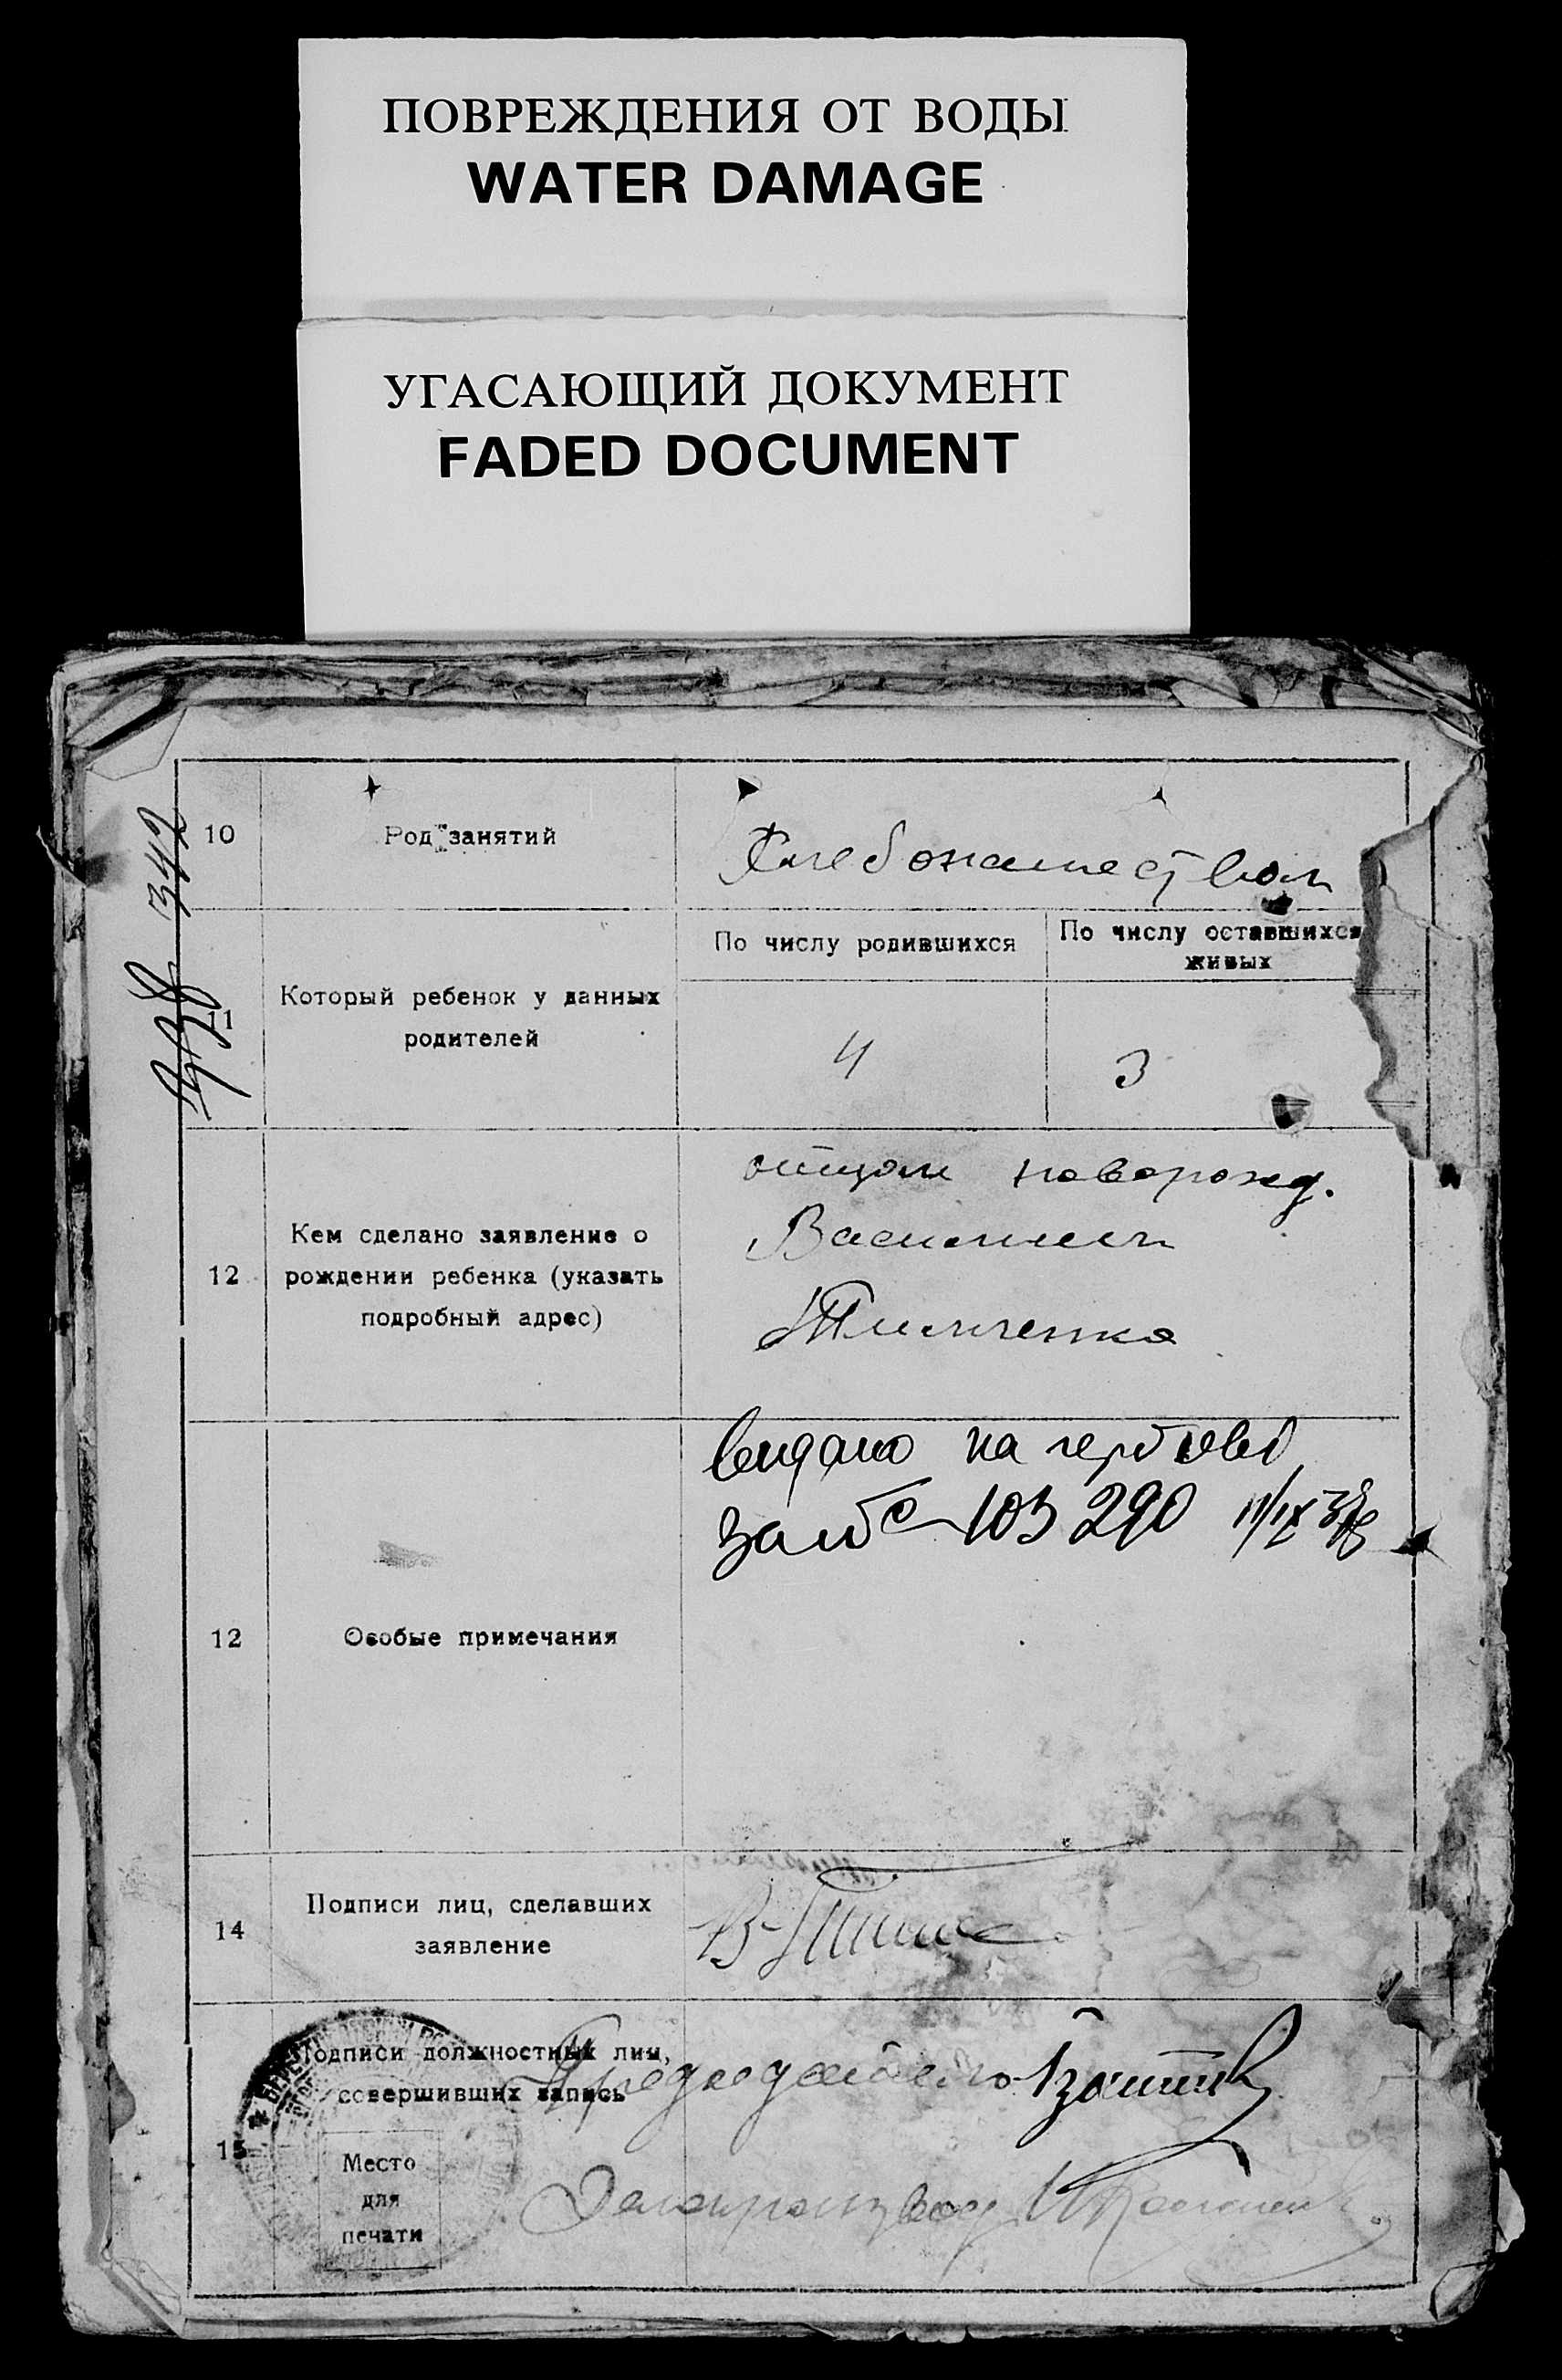 ПОВРЕЖДЕНИЯ ОТ ВОДЫ
WATER DAMAGE
УГАСАЮЩИЙ ДОКУМЕНТ
FADED DOCUMENT
342
10
Род занятий
Хлебопашеством
11
Который ребенок у данных
родителей
По числу родившихся
По числу оставшихся
живых
4
3
12
Кем сделано заявление о
рождении ребенка (указать
подробный адрес)
отцом новорожд.
Василием
Тимченко
12
Особые примечания
видано на
103290 11/IX
14
Подписи лиц, сделавших
заявление
В
15
Подписи должностных лиц,
совершивших запись
Место
для
печати
Председатель
Делопроизвод.